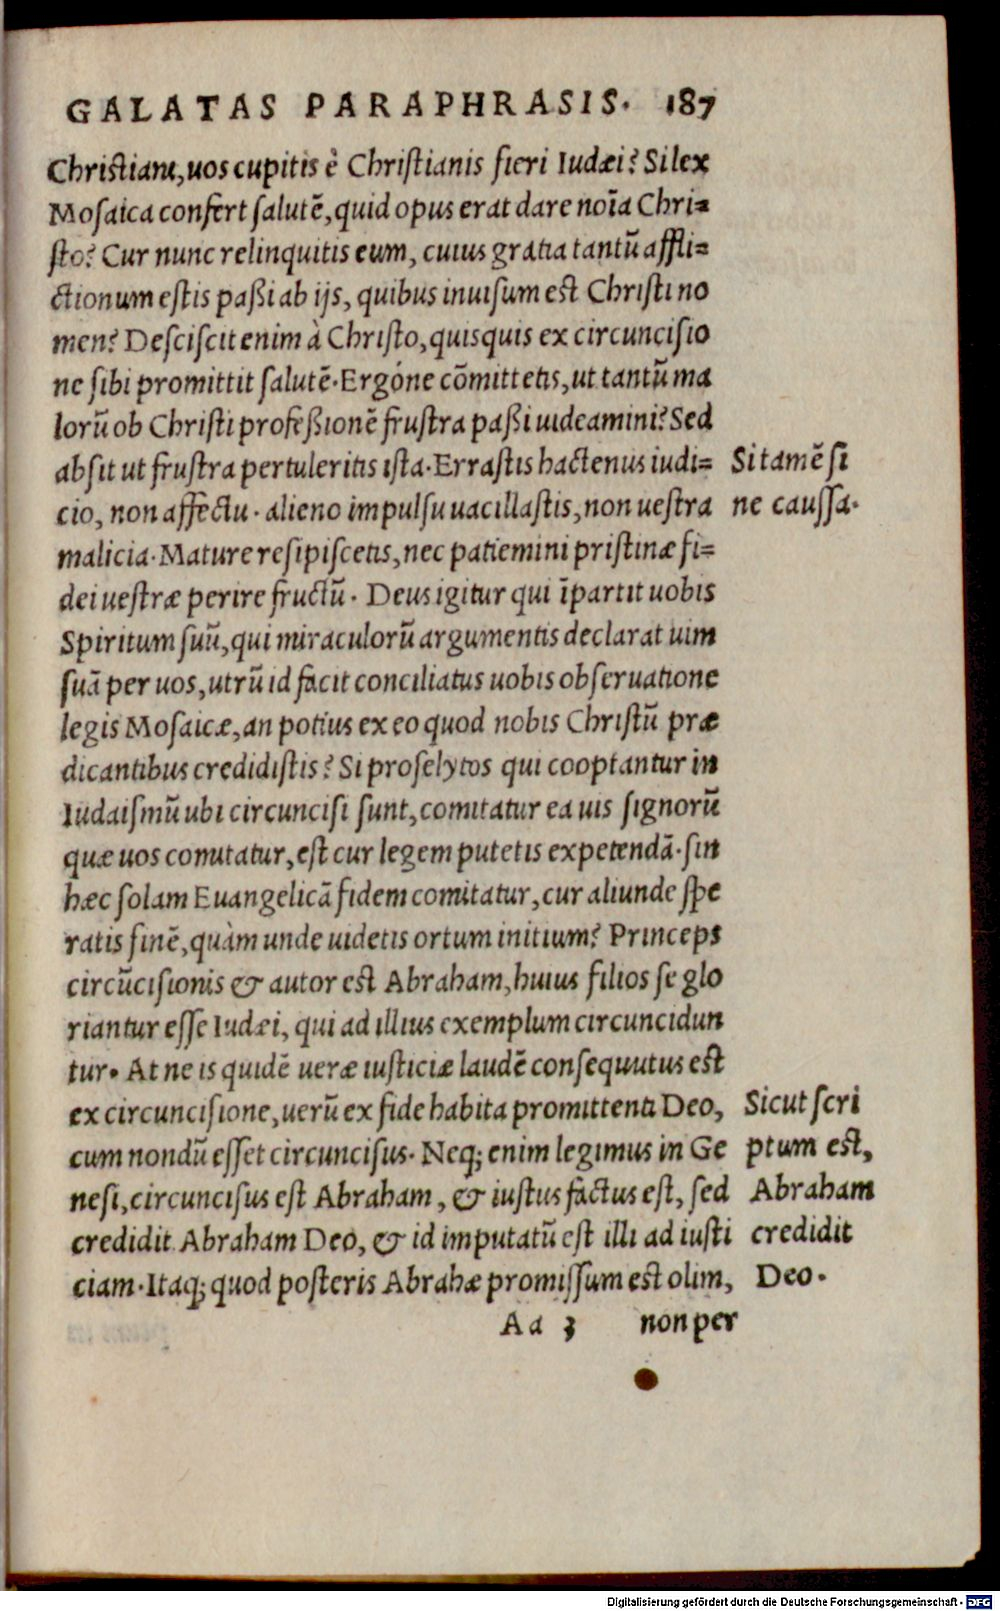 GALATAS PARAPHRASIS. 187
Christiani, uos cupitis è Christianis fieri Iudæi? Si lex
Mosaica confert salutē, quid opus erat dare noīa Chri=
sto? Cur nunc relinquitis eum, cuius gratia tantū affli=
ctionum estis paßi ab ijs, quibus inuisum est Christi no
men? Desciscit enim à Christo, quisquis ex circuncisio
ne sibi promittit salutē. Ergóne cōmittetis, ut tantū ma
lorū ob Christi profeßionē frustra paßi uideamini? Sed
absit ut frustra pertuleritis ista. Errastis hactenus iudi=
cio, non affectu. alieno impulsu uacillastis, non uestra
malicia. Mature resipiscetis, nec patiemini pristinæ fi=
dei uestræ perire fructū. Deus igitur qui īpartit uobis
Spiritum suū, qui miraculorū argumentis declarat uim
suā per uos, utrū id facit conciliatus uobis obseruatione
legis Mosaicæ, an potius ex eo quod nobis Christū præ
dicantibus credidistis? Si proselytos qui cooptantur in
Iudaismū ubi circuncisi sunt, comitatur ea uis signorū
quæ uos comitatur, est cur legem putetis expetendā. sin
hæc solam Euangelicā fidem comitatur, cur aliunde spe
ratis finē, quàm unde uidetis ortum initium? Princeps
circūcisionis & autor est Abraham, huius filios se glo
riantur esse Iudæi, qui ad illius exemplum circuncidun
tur. At ne is quidē ueræ iusticiæ laudē consequutus est
ex circuncisione, uerū ex fide habita promittenti Deo,
cum nondū esset circuncisus. Neq; enim legimus in Ge
nesi, circuncisus est Abraham, & iustus factus est, sed
credidit Abraham Deo, & id imputatū est illi ad iusti
ciam. Itaq; quod posteris Abrahæ promissum est olim,
Aa 3 non per
Si tamē si
ne caussa.
Sicut scri
ptum est,
Abraham
credidit
Deo.
Digitalisierung gefördert durch die Deutsche Forschungsgemeinschaft - DFG